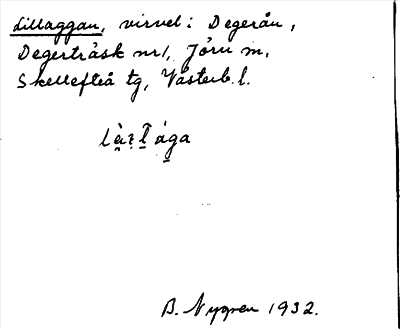 Lillaggan, virvel i Degerån,
Degerträsk nr 1, Jörn m,
Skellefteå tg, Västerb. l.
B. Nygren 1932.